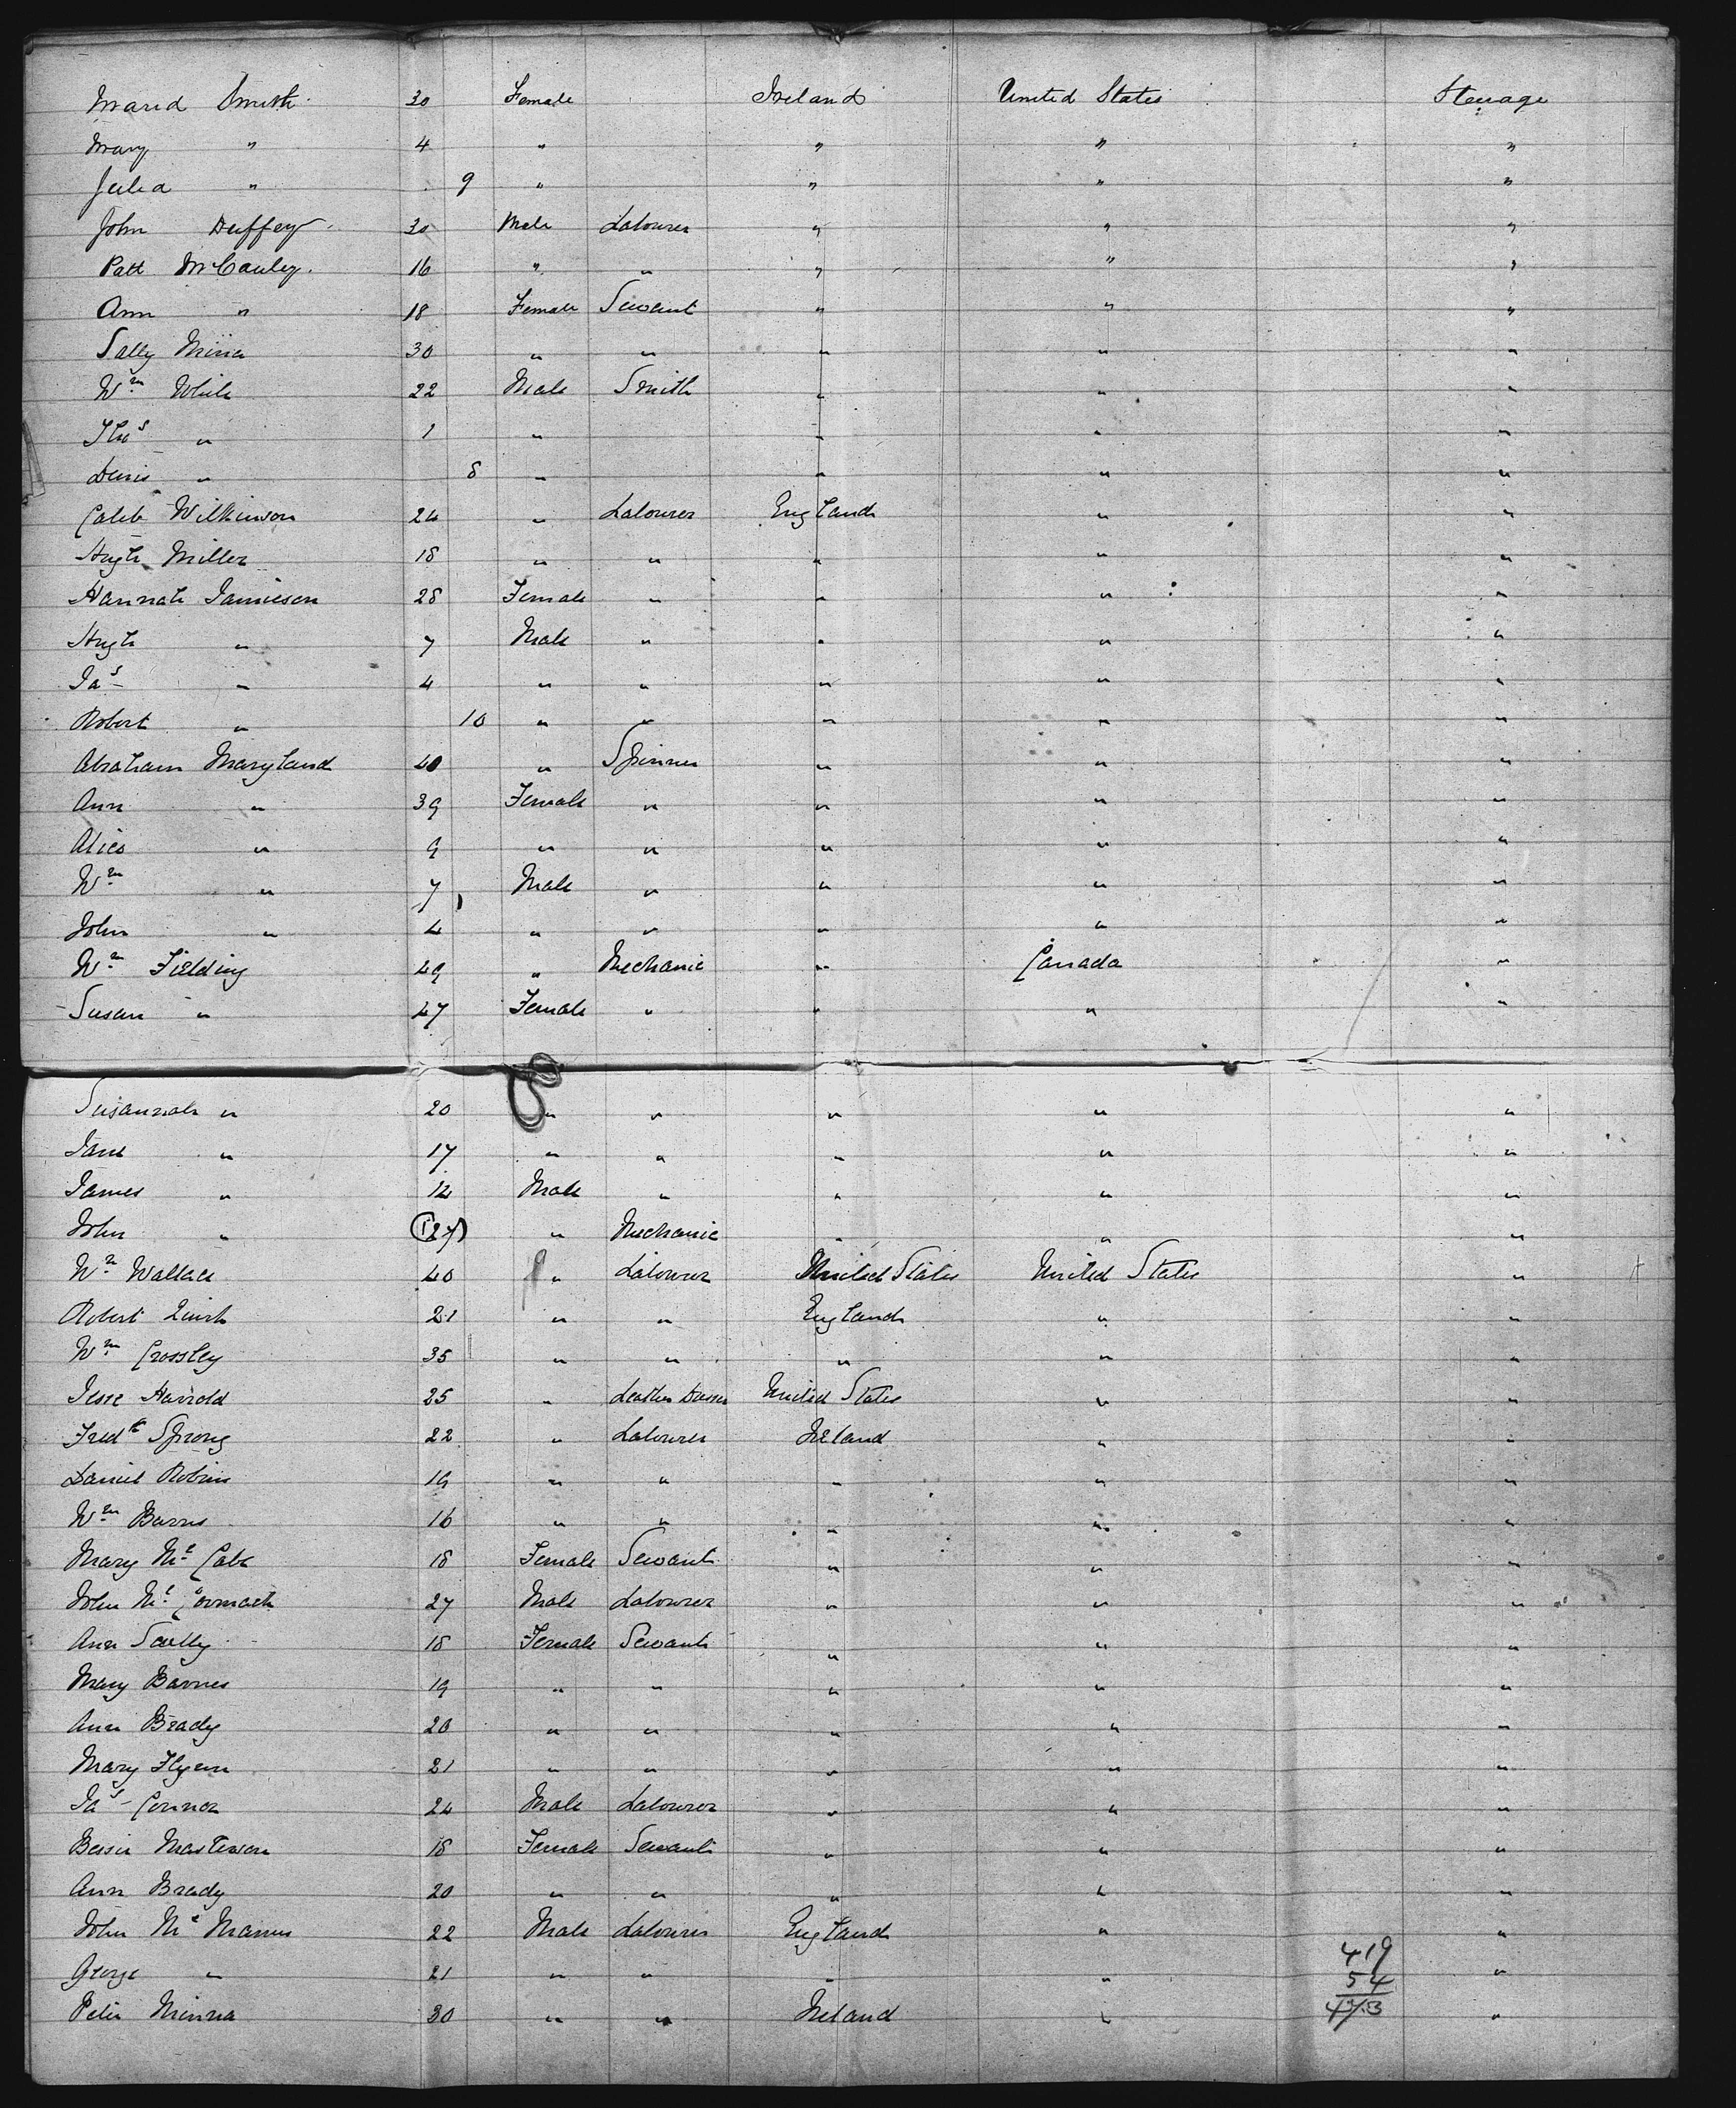 Smith 30 Female Ireland United States Steerage
Mary " 4 " " " "
Julia " 9 " " " "
John Duffey 30 Male Labourer " " "
Patt McCauley 16 " " " " "
Ann " 18 Female Servant " " "
Sally 30 " " " " "
Wm White 22 Male Smith " " "
Thos " 1 " " " "
Denis " 8 " " " "
Caleb Wilkinson 24 " Labourer England " "
Hugh Miller 18 " " " " "
Hannah Jamieson 28 Female " " " "
Hugh " 7 Male " " " "
Jas " 4 " " " " "
Robert " 10 " " " " "
Abraham Maryland 40 " Spinner " " "
Ann " 39 Female " " " "
Alice " 9 " " " " "
Wm " 7 Male " " " "
John " 4 " " " " "
Wm Fielding 49 " Mechanic " Canada "
Susan " 47 Female " " " "
Susannah " 20 " " " " "
Jane " 17 " " " " "
James " 12 Male " " " "
John " " Mechanic " " "
Wm Wallace 40 " Labourer United States United States "
Robert 21 " " England " "
Wm Crossley 35 " " " " "
Jesse Harrold 25 " Leather United States " "
Fredk Sprong 22 " Labourer Ireland " "
Daniel Robins 19 " " " " "
Wm Burns 16 " " " " "
Mary Mc Cabe 18 Female Servant " " "
John Mc Cormack 27 Male Labourer " " "
Ann Scully 18 Female Servant " " "
Mary Barnes 19 " " " " "
Ann Brady 20 " " " " "
Mary Flynn 21 " " " " "
Jas Connor 24 Male Labourer " " "
Bessie Masterson 18 Female Servant " " "
Ann Brady 20 " " " " "
John Mc Manus 22 Male Labourer England " "
419
George " 21 " " " " "
54
Peter 30 " " Ireland " "
473